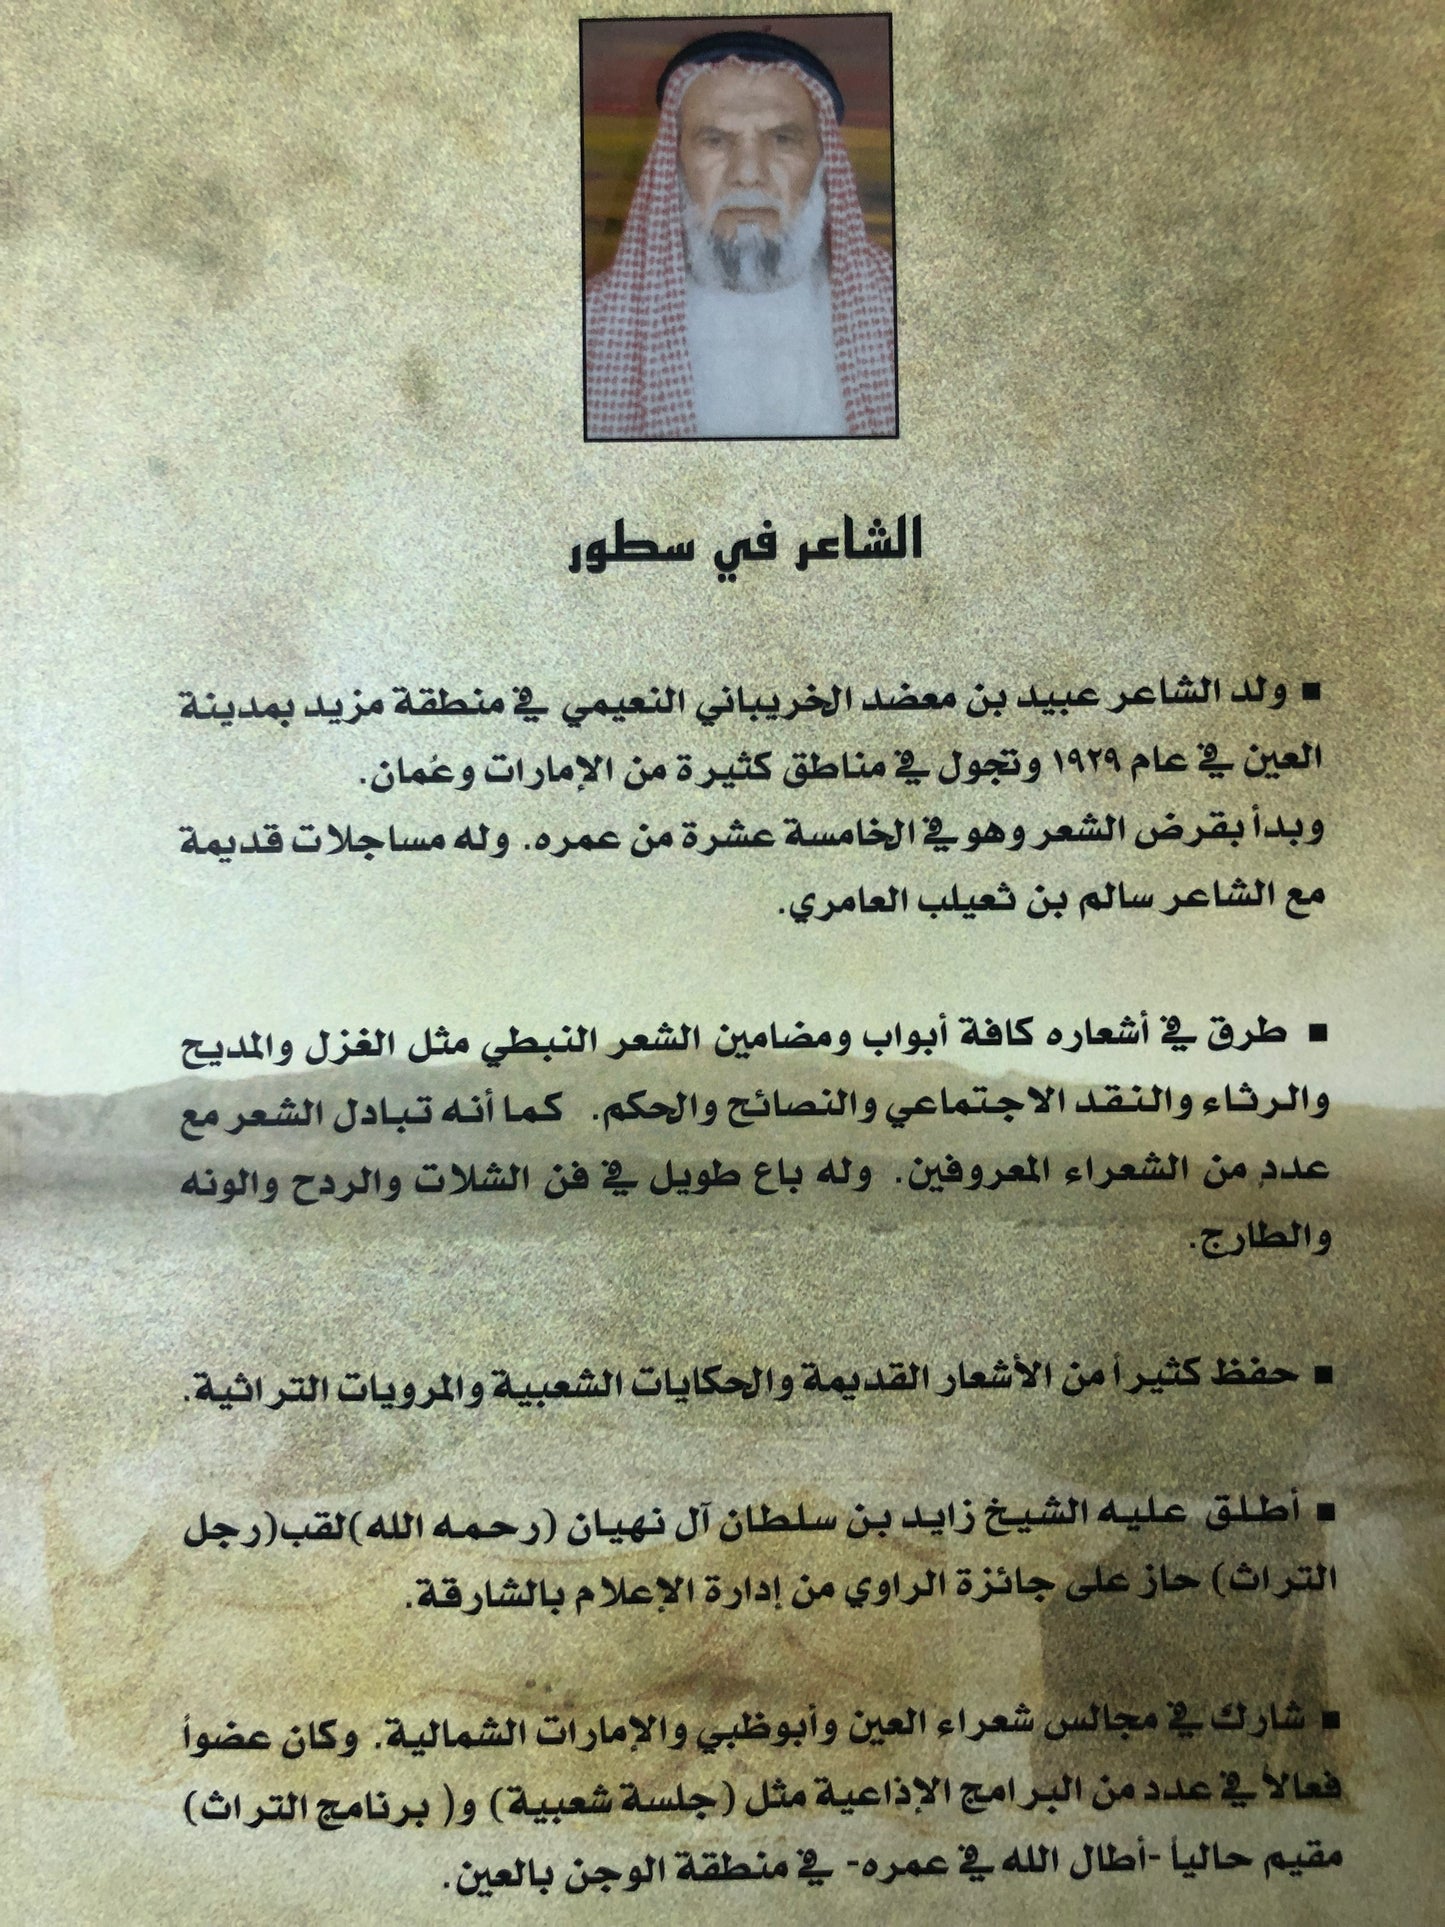 الشاعر في سطور
▪ ولد الشاعر عبيد بن معضد الخريباني النعيمي في منطقة مزيد بمدينة
العين في عام ١٩٢٩ وتجول في مناطق كثيرة من الإمارات وعُمان.
وبدأ بقرض الشعر وهو في الخامسة عشرة من عمره. وله مساجلات قديمة
مع الشاعر سالم بن ثعيلب العامري.
▪ طرق في أشعاره كافة أبواب ومضامين الشعر النبطي مثل الغزل والمديح
والرثاء والنقد الاجتماعي والنصائح والحكم. كما أنه تبادل الشعر مع
عددٍ من الشعراء المعروفين. وله باع طويل في فن الشلات والردح والونه
والطارج.
▪ حفظ كثيراً من الأشعار القديمة والحكايات الشعبية والمرويات التراثية.
▪ أطلق عليه الشيخ زايد بن سلطان آل نهيان (رحمه الله)لقب(رجل
التراث) حاز على جائزة الراوي من إدارة الإعلام بالشارقة.
▪ شارك في مجالس شعراء العين وأبوظبي والإمارات الشمالية. وكان عضواً
فعالاً في عدد من البرامج الإذاعية مثل (جلسة شعبية) و( برنامج التراث)
مقيم حالياً -أطال الله في عمره- في منطقة الوجن بالعين.